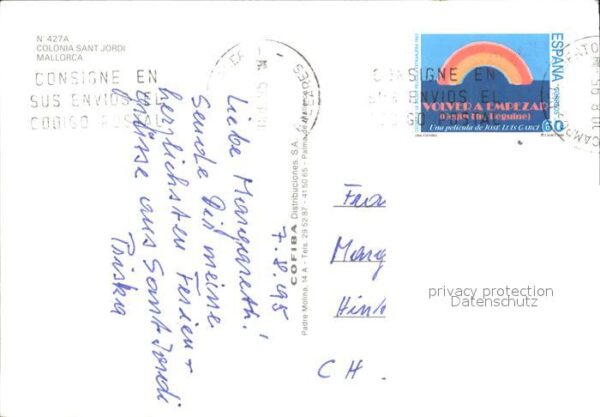 Nº 427A
COLONIA SANT JORDI
MALLORCA
CONSIGNE EN
SUS ENVIOS EL
CODIGO POSTAL
7.8.95
Liebe Margareth!
Sende Dir meine
herzlichsten Ferien-
grüsse aus Sant Jordi
Priska
COFIBA Distribuciones, S.A.
Padre Molina, 14 A - Tels. 29 52 87 - 41 50 65 - Palma de
CONSIGNE EN
ENVIOS EL
ESPAÑA
CORREOS
VOLVER A EMPEZAR
(Begin the Beguine)
Una película de JOSE LUIS GARCI
60
Frau
Marg
Hin
CH.
privacy protection
Datenschutz